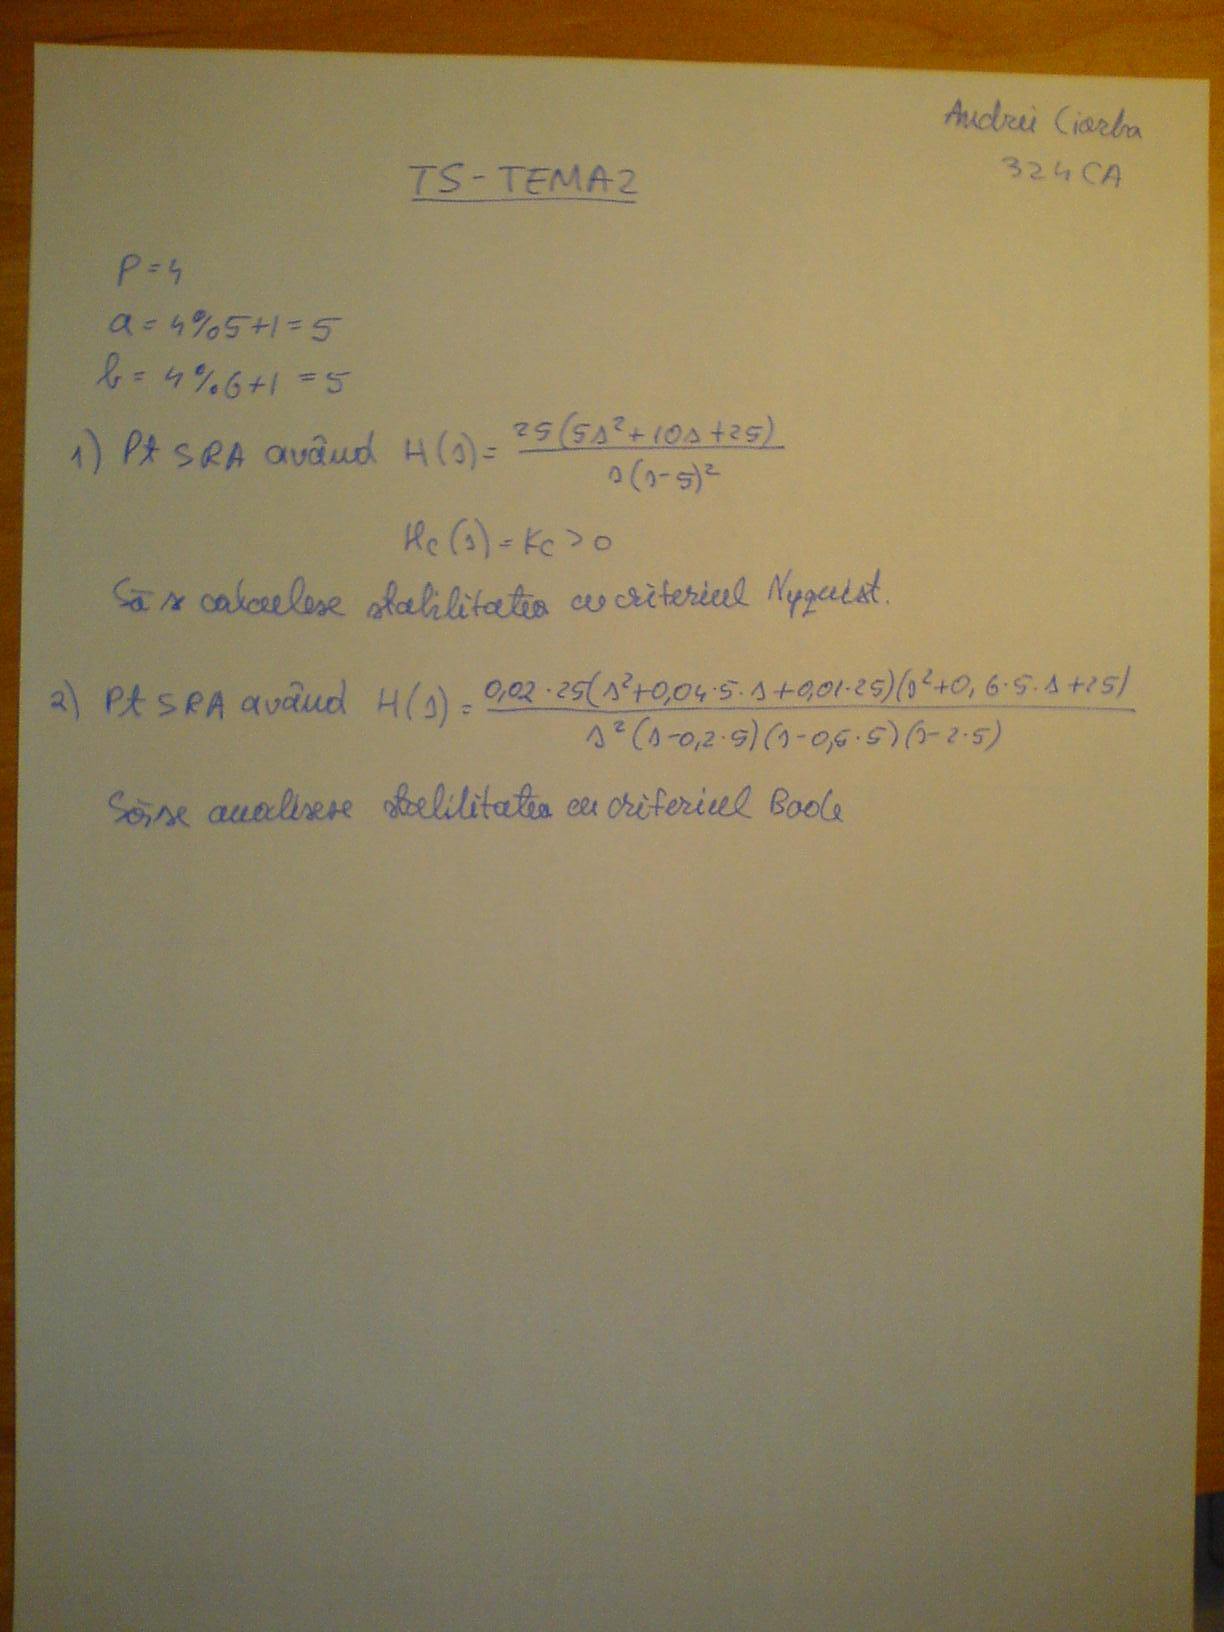 Andrei Ciorba
324CA
TS-TEMA2
P=4
a=4%5+1=5
b=4%6+1=5
1) Pt SRA având H(s)= 25(5s²+10s+25) / s(s-5)²
Hc(s)=Kc>0
Să se calculeze stabilitatea cu criteriul Nyquist.
2) Pt SRA având H(s)= 0,02·25(s²+0,04·5·s+0,01·25)(s²+0,6·5·s+25) / s²(s-0,2·5)(s-0,5·5)(s-2·5)
Să se analizeze stabilitatea cu criteriul Bode